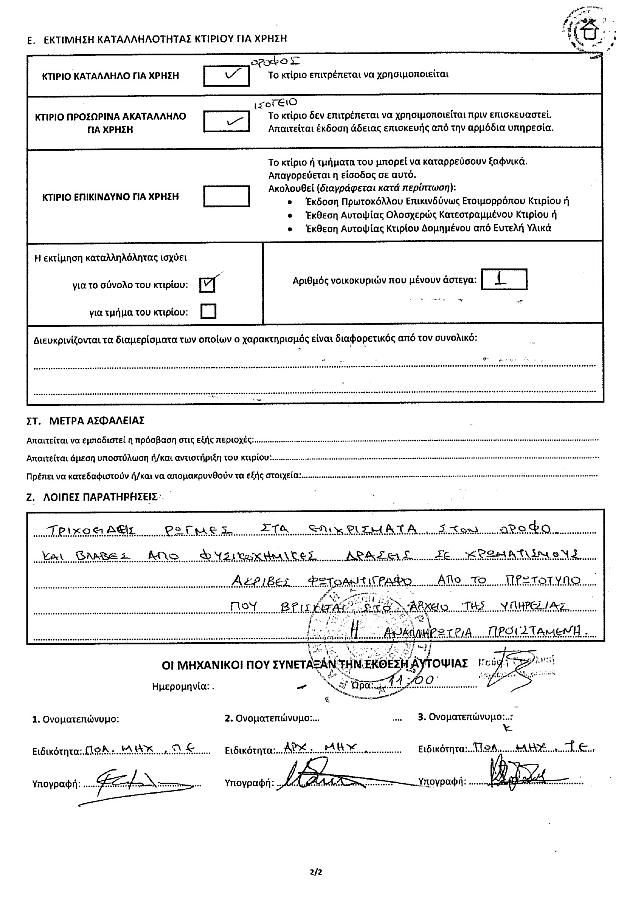 Ε. ΕΚΤΙΜΗΣΗ ΚΑΤΑΛΛΗΛΟΤΗΤΑΣ ΚΤΙΡΙΟΥ ΓΙΑ ΧΡΗΣΗ
ΟΡΟΦΟΣ
ΚΤΙΡΙΟ ΚΑΤΑΛΛΗΛΟ ΓΙΑ ΧΡΗΣΗ ✓ Το κτίριο επιτρέπεται να χρησιμοποιείται
ΙΣΟΓΕΙΟ
ΚΤΙΡΙΟ ΠΡΟΣΩΡΙΝΑ ΑΚΑΤΑΛΛΗΛΟ ΓΙΑ ΧΡΗΣΗ ✓
Το κτίριο δεν επιτρέπεται να χρησιμοποιείται πριν επισκευαστεί.
Απαιτείται έκδοση άδειας επισκευής από την αρμόδια υπηρεσία.
ΚΤΙΡΙΟ ΕΠΙΚΙΝΔΥΝΟ ΓΙΑ ΧΡΗΣΗ
Το κτίριο ή τμήματα του μπορεί να καταρρεύσουν ξαφνικά.
Απαγορεύεται η είσοδος σε αυτό.
Ακολουθεί (διαγράφεται κατά περίπτωση):
• Έκδοση Πρωτοκόλλου Επικινδύνως Ετοιμορρόπου Κτιρίου ή
• Έκθεση Αυτοψίας Ολοσχερώς Κατεστραμμένου Κτιρίου ή
• Έκθεση Αυτοψίας Κτιρίου Δομημένου από Ευτελή Υλικά
Η εκτίμηση καταλληλόλητας ισχύει
για το σύνολο του κτιρίου: ✓
για τμήμα του κτιρίου:
Αριθμός νοικοκυριών που μένουν άστεγα: 1
Διευκρινίζονται τα διαμερίσματα των οποίων ο χαρακτηρισμός είναι διαφορετικός από τον συνολικό:
ΣΤ. ΜΕΤΡΑ ΑΣΦΑΛΕΙΑΣ
Απαιτείται να εμποδιστεί η πρόσβαση στις εξής περιοχές:
Απαιτείται άμεση υποστύλωση ή/και αντιστήριξη του κτιρίου:
Πρέπει να κατεδαφιστούν ή/και να απομακρυνθούν τα εξής στοιχεία:
Ζ. ΛΟΙΠΕΣ ΠΑΡΑΤΗΡΗΣΕΙΣ
ΤΡΙΧΟΕΙΔΕΙΣ ΡΩΓΜΕΣ ΣΤΑ ΕΠΙΧΡΙΣΜΑΤΑ ΣΤΟΝ ΟΡΟΦΟ
ΚΑΙ ΒΛΑΒΕΣ ΑΠΟ ΦΥΣΙΚΟΧΗΜΙΚΕΣ ΔΡΑΣΕΙΣ ΣΕ ΧΡΩΜΑΤΙΣΜΟΥΣ
ΑΚΡΙΒΕΣ ΦΩΤΟΑΝΤΙΓΡΑΦΟ ΑΠΟ ΤΟ ΠΡΩΤΟΤΥΠΟ
ΠΟΥ ΒΡΙΣΚΕΤΑΙ ΣΤΟ ΑΡΧΕΙΟ ΤΗΣ ΥΠΗΡΕΣΙΑΣ
Η ΑΝΑΠΛΗΡΩΤΡΙΑ ΠΡΟΪΣΤΑΜΕΝΗ
ΟΙ ΜΗΧΑΝΙΚΟΙ ΠΟΥ ΣΥΝΕΤΑΞΑΝ ΤΗΝ ΕΚΘΕΣΗ ΑΥΤΟΨΙΑΣ
Ημερομηνία: Ώρα: 11:00
1. Ονοματεπώνυμο: 2. Ονοματεπώνυμο: 3. Ονοματεπώνυμο:
Ειδικότητα: ΠΟΛ. ΜΗΧ. Π.Ε Ειδικότητα: ΑΡΧ. ΜΗΧ. Ειδικότητα: ΠΟΛ. ΜΗΧ. Τ.Ε.
Υπογραφή: Υπογραφή: Υπογραφή:
2/2